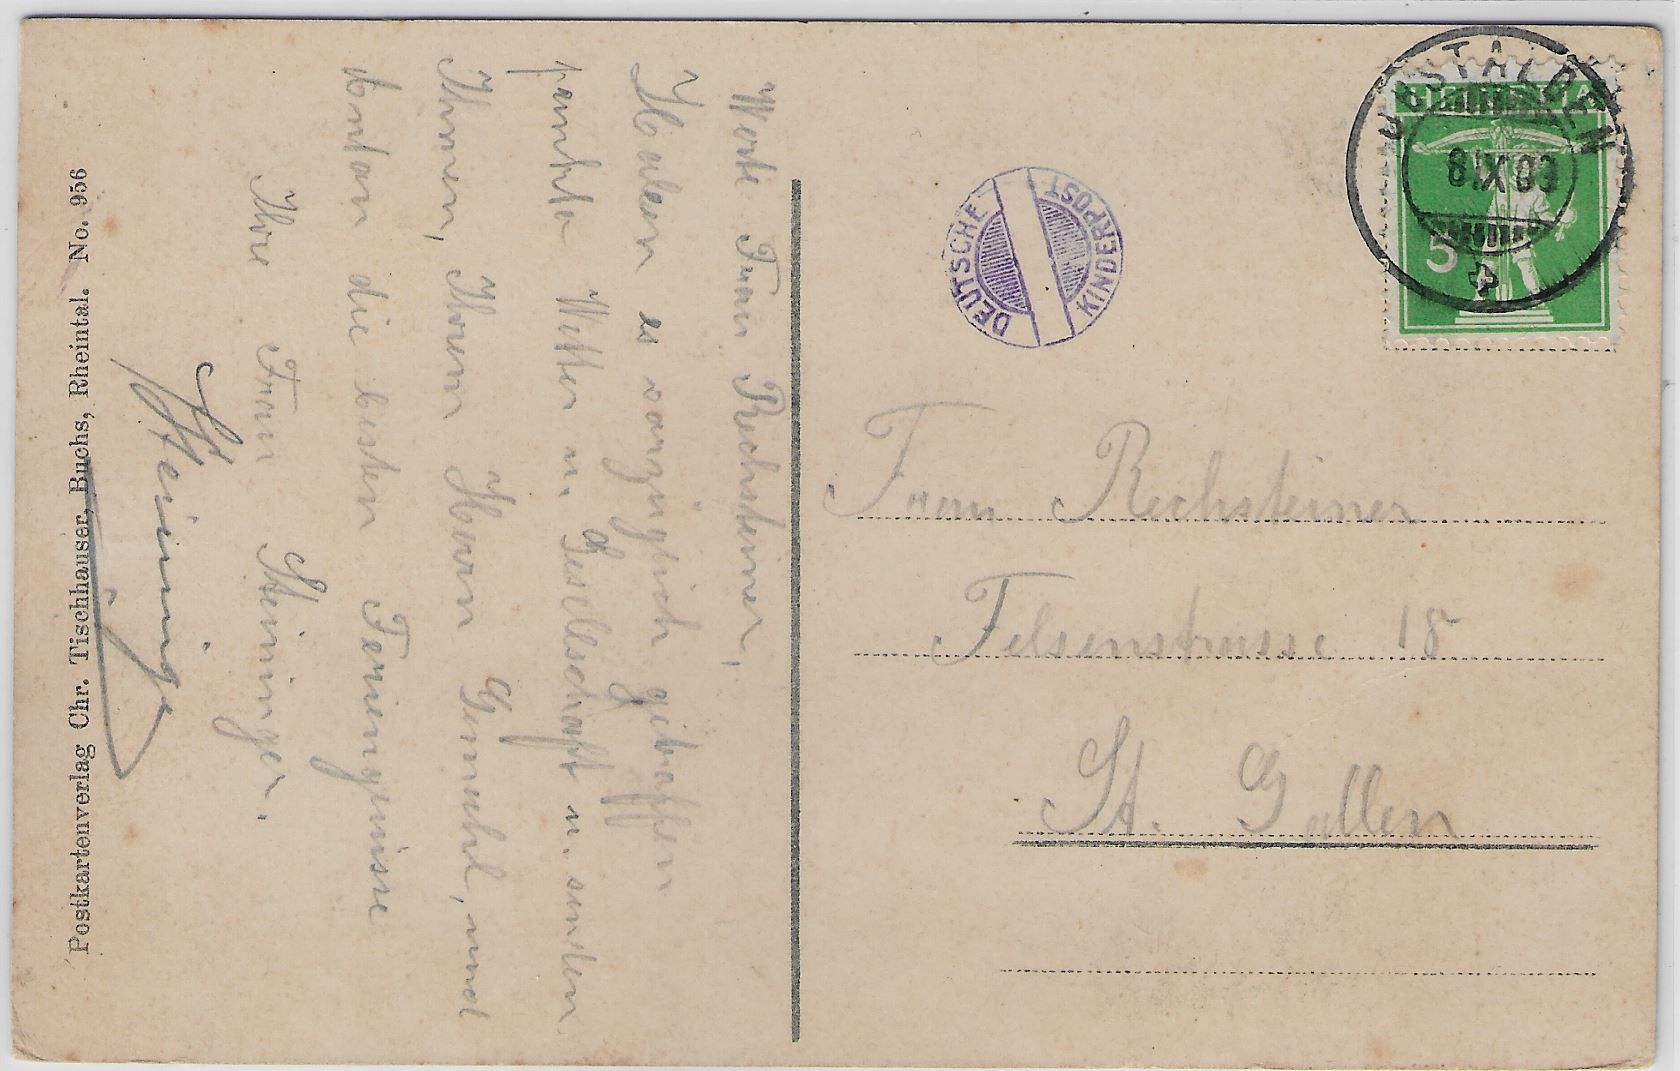 Werte Frau Rechsteiner,
Haben es vorzüglich getroffen
Wetter u. Gesellschaft u. senden
Ihnen, Ihrem Herrn Gemahl, und
die besten Feriengrüsse
Ihre Frau Steininger.
Steininger
Postkartenverlag Chr. Tischhauser, Buchs, Rheintal. No. 956
DEUTSCHE KINDERPOST
HELVETIA
5
IX
Frau Rechsteiner
Felsenstrasse 18
St. Gallen